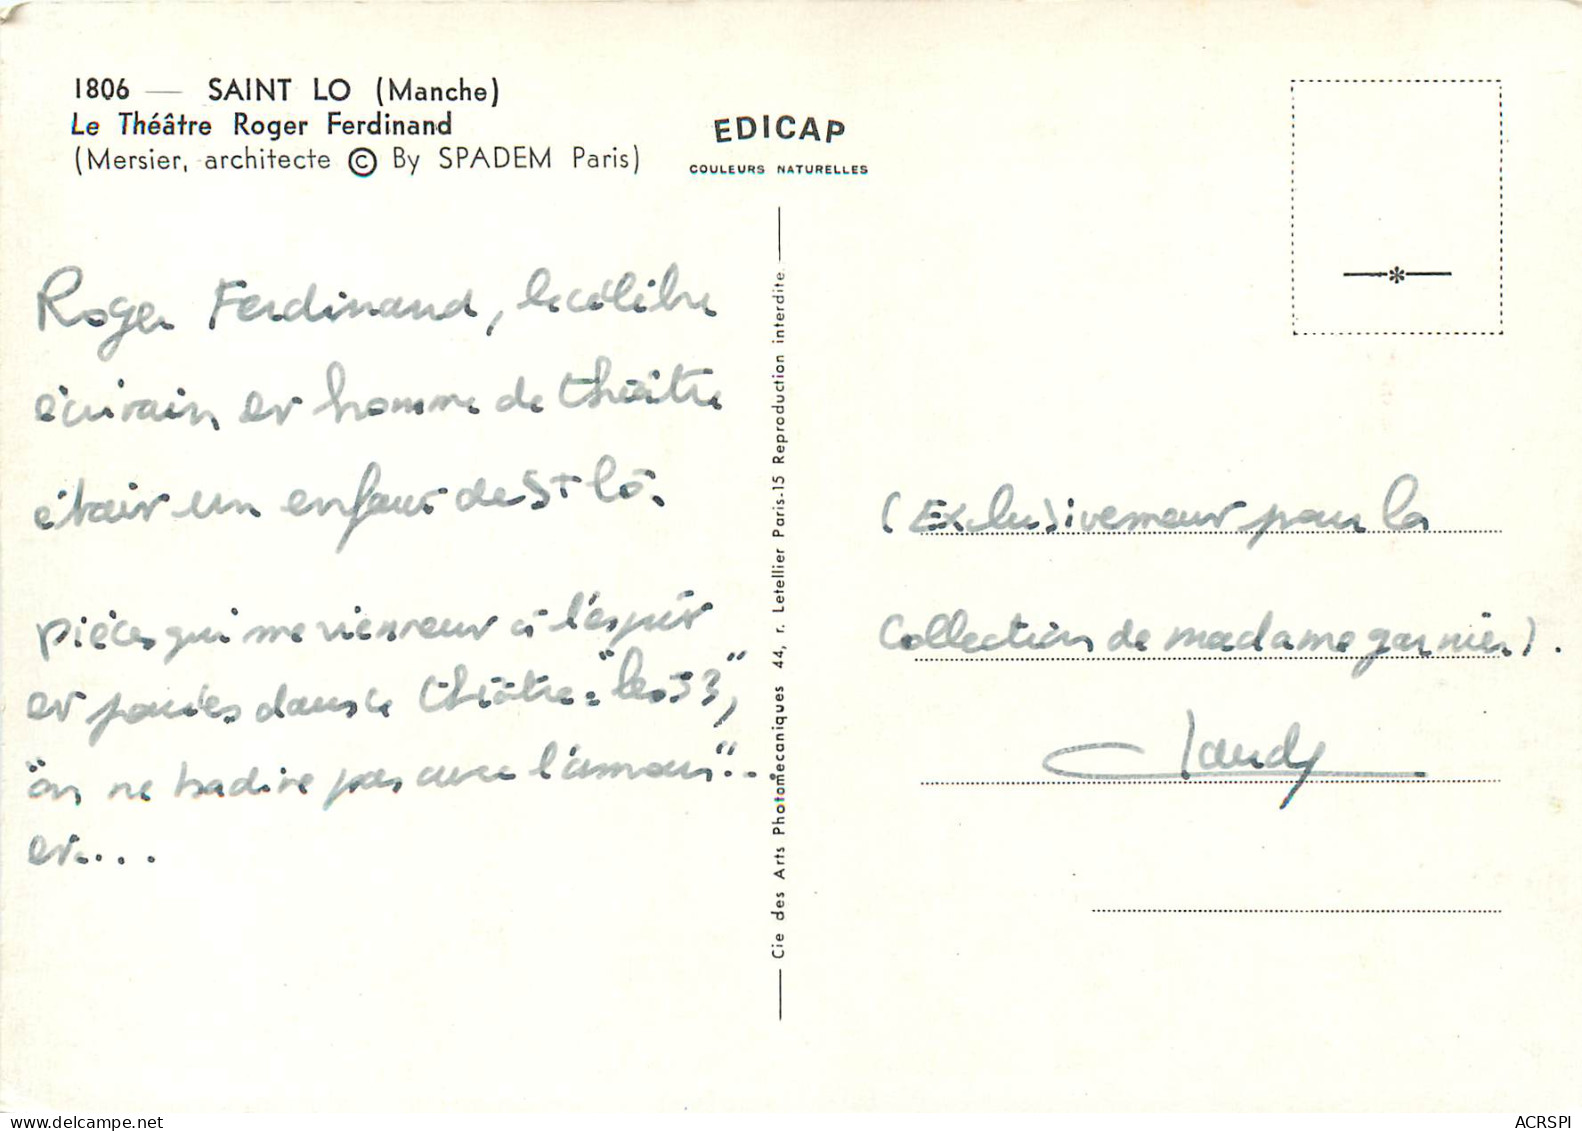 1806 — SAINT LO (Manche)
Le Théâtre Roger Ferdinand
(Mersier, architecte © By SPADEM Paris)
EDICAP
COULEURS NATURELLES
Roger Ferdinand, le célèbre
écrivain et homme de théâtre
était un enfant de St Lô.
pièces qui me viennent à l'esprit
et jouées dans ce théâtre: "les J3",
"on ne badine pas avec l'amour"...
et....
Cie des Arts Photomecaniques 44, r. Letellier Paris-15 Reproduction interdite
(Exclusivement pour la
Collection de madame garnier).
Claudy
www.delcampe.net
ACRSPI